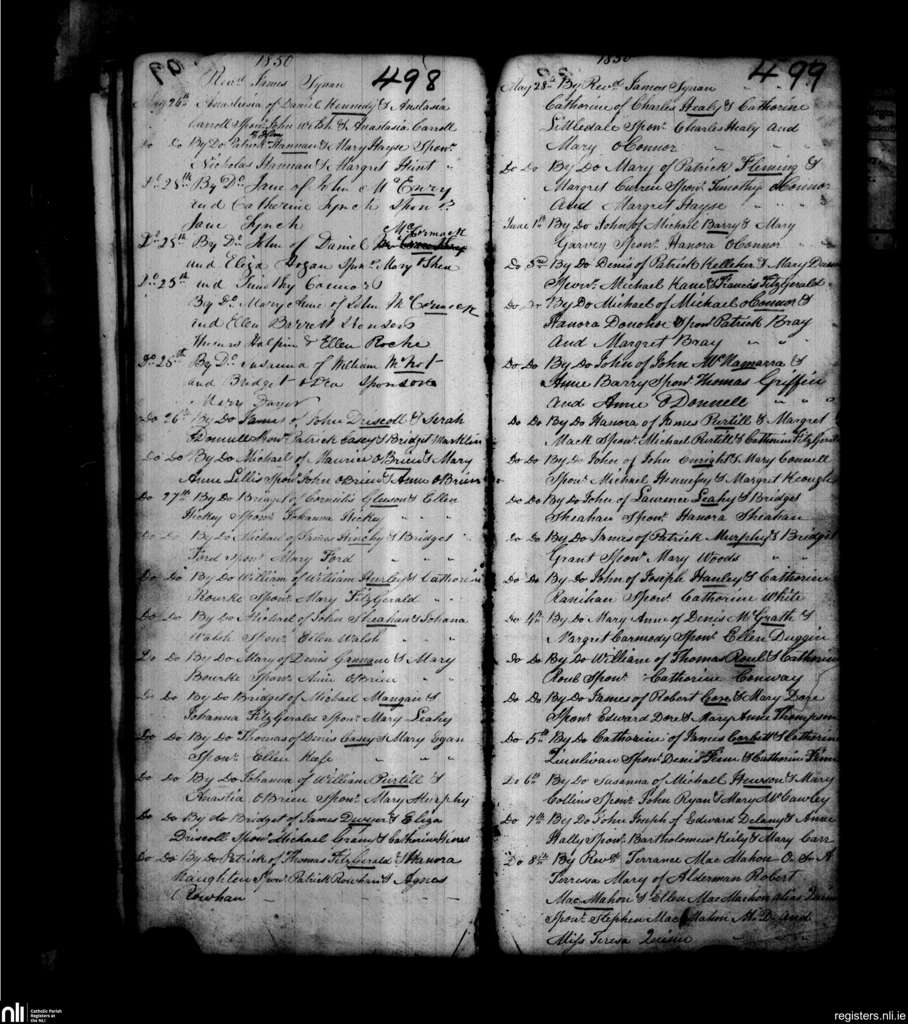 1850
498
Revd. James Synan
May 26th Anastasia of Daniel Kennedy & Anstasia
Carroll Spon. John Welsh & Anastasia Carroll
Do Do By Do Patrick of John Hannan & Mary Hayse Spon.
Nicholas Hannan & Margret Flint
Do 28th By Do Jane of John McEnry
and Catherine Lynch Spon
Jane Lynch
Do 25th By Do John of Daniel McCormack
and Eliza Hogan Spon. Mary Shea
Do 25th and Timthy Connors
By Do Mary Anne of John McCormack
and Ellen Barrett Sponsors
Thomas Halpin & Ellen Roche
Do 28th By Do of William
and Bridget O'Dea Sponsors
Mary
Do 26th By Do James of John Driscoll & Serah
Donnell Spon. Patrick Casey & Bridget
Do Do By Do Michael of Maurice O'Brien & Mary
Anne Lillis Spon. John O'Brien & Anne O'Brien
Do 27th By Do Bridget of Cornelis Gleeson & Ellen
Hickey Spon. Johanna Hickey
Do Do By Do Michael of James Hinchy & Bridget
Ford Spon. Mary Ford
Do Do By Do William of William Hurley & Catherin
Rourke Spon. Mary FitzGerald
Do Do By Do Michael of John Sheahan & Johana
Walsh Spon. Ellen Walsh
Do Do By Do Mary of Denis Gannane & Mary
Bourke Spon. Ann O'Brien
Do Do By Do Bridget of Michael Mangan &
Johanna FitzGerald Spon. Mary Leahy
Do Do By Do Thomas of Denis Casey & Mary Egan
Spon. Ellen
Do Do By Do Johanna of William Purtill &
Anastia O'Brien Spon. Mary Murphy
Do Do By do Bridget of James Dwyer & Eliza
Driscoll Spon. Michael & Catherine
Do Do By Do Patrick of Thomas FitzGerald & Hanora
Naughton Spon. Patrick Rowhan & Agnes
Rowhan
1850
499
May 28th By Revd. James Synan
Catherine of Charles Healy & Catherine
Littledale Spon. Charles Healy and
Mary O'Connor
Do Do By Do Mary of Patrick Fleming &
Margret Curren Spon. Timothy O'Connor
And Margret Hayse
June 1st By Do John of Michael Barry & Mary
Garvey Spon. Hanora O'Connor
Do 3rd By Do Denis of Patrick Kelleher & Mary
Spon. Michael Kane & Francis FitzGerald
Do Do By Do Michael of Michael Connor &
Hanora Donohoe Spon. Patrick Bray
And Margret Bray
Do Do By Do John of John McNamarra &
Anne Barry Spon. Thomas Griffin
And Anne O'Donnell
Do Do By Do Hanora of James Purtill & Margret
Mack Spon. Michael Purtill & Catherine FitzGerald
Do Do By Do John of John Enright & Mary Connell
Spon. Michael Hennifey & Margret Keough
Do Do By Do John of Laurence Leahy & Bridget
Sheahan Spon. Hanora Sheahan
Do Do By Do James of Patrick Murphy & Bridget
Grant Spon. Mary Woods
Do Do By Do John of Joseph Hanley & Catherine
Ranihan Spon. Catherine White
Do 4th By Do Mary Anne of Denis McGrath &
Margret Carmody Spon. Ellen Duggin
Do Do By Do William of Thomas Roul & Catherin
Roul Spon. Catherine Conway
Do Do By Do James of Robert Coxe & Mary Dore
Spon. Edward Dore & Mary Anne Thompson
Do 5th By Do Catharine of James Corbett & Catherin
Quinlivan Spon. Denis Finn & Catherin Finn
Do 6th By Do Susanna of Michall Hewson & Mary
Collins Spon. John Ryan & Mary McCawley
Do 7th By Do John Joseph of Edward Delany & Anne
Hally Spon. Bartholomew Keily & Mary Carr
Do 8th By Revd. Terrance Mac Mahon
Terressa Mary of Alderman Robert
Mac Mahon & Ellen MacMachon alias Quinn
Spon. Stephen Mac Mahon M.D. and
Miss Teresa Quinn
nli
Catholic Parish
Registers at
the NLI
registers.nli.ie